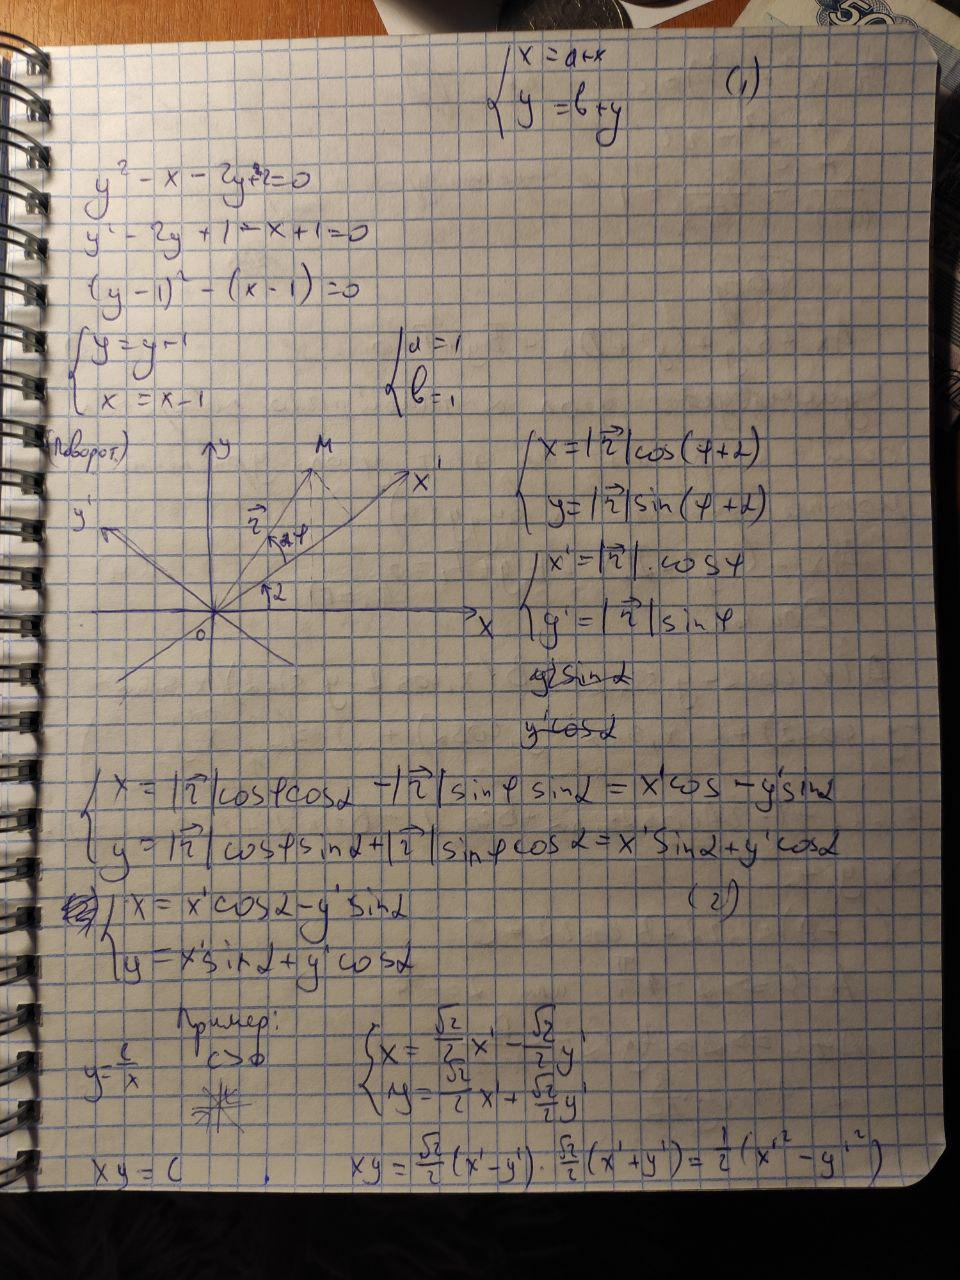 { x = a+x
{ y = b+y (1)
y² - x - 2y+2=0
y² - 2y + 1 - x + 1 = 0
(y - 1)² - (x - 1) = 0
{ y = y-1 { a = 1
{ x = x-1 { b = 1
(Поворот.) y M x' y' r⃗ φ α o x
{ x = |r⃗|cos(φ+α)
{ y = |r⃗|sin(φ+α)
{ x' = |r⃗|·cosφ
{ y' = |r⃗|sinφ
y'sinα
y'cosα
{ x = |r⃗|cosφcosα - |r⃗|sinφ sinα = x'cos - y'sinα
{ y = |r⃗|cosφsinα + |r⃗|sinφcosα = x'sinα + y'cosα
{ x = x'cosα - y'sinα (2)
{ y = x'sinα + y'cosα
Пример:
y = c/x c>0
{ x = √2/2 x' - √2/2 y'
{ y = √2/2 x' + √2/2 y'
xy = C . xy = √2/2 (x' - y') · √2/2 (x' + y') = 1/2 (x'² - y'²)